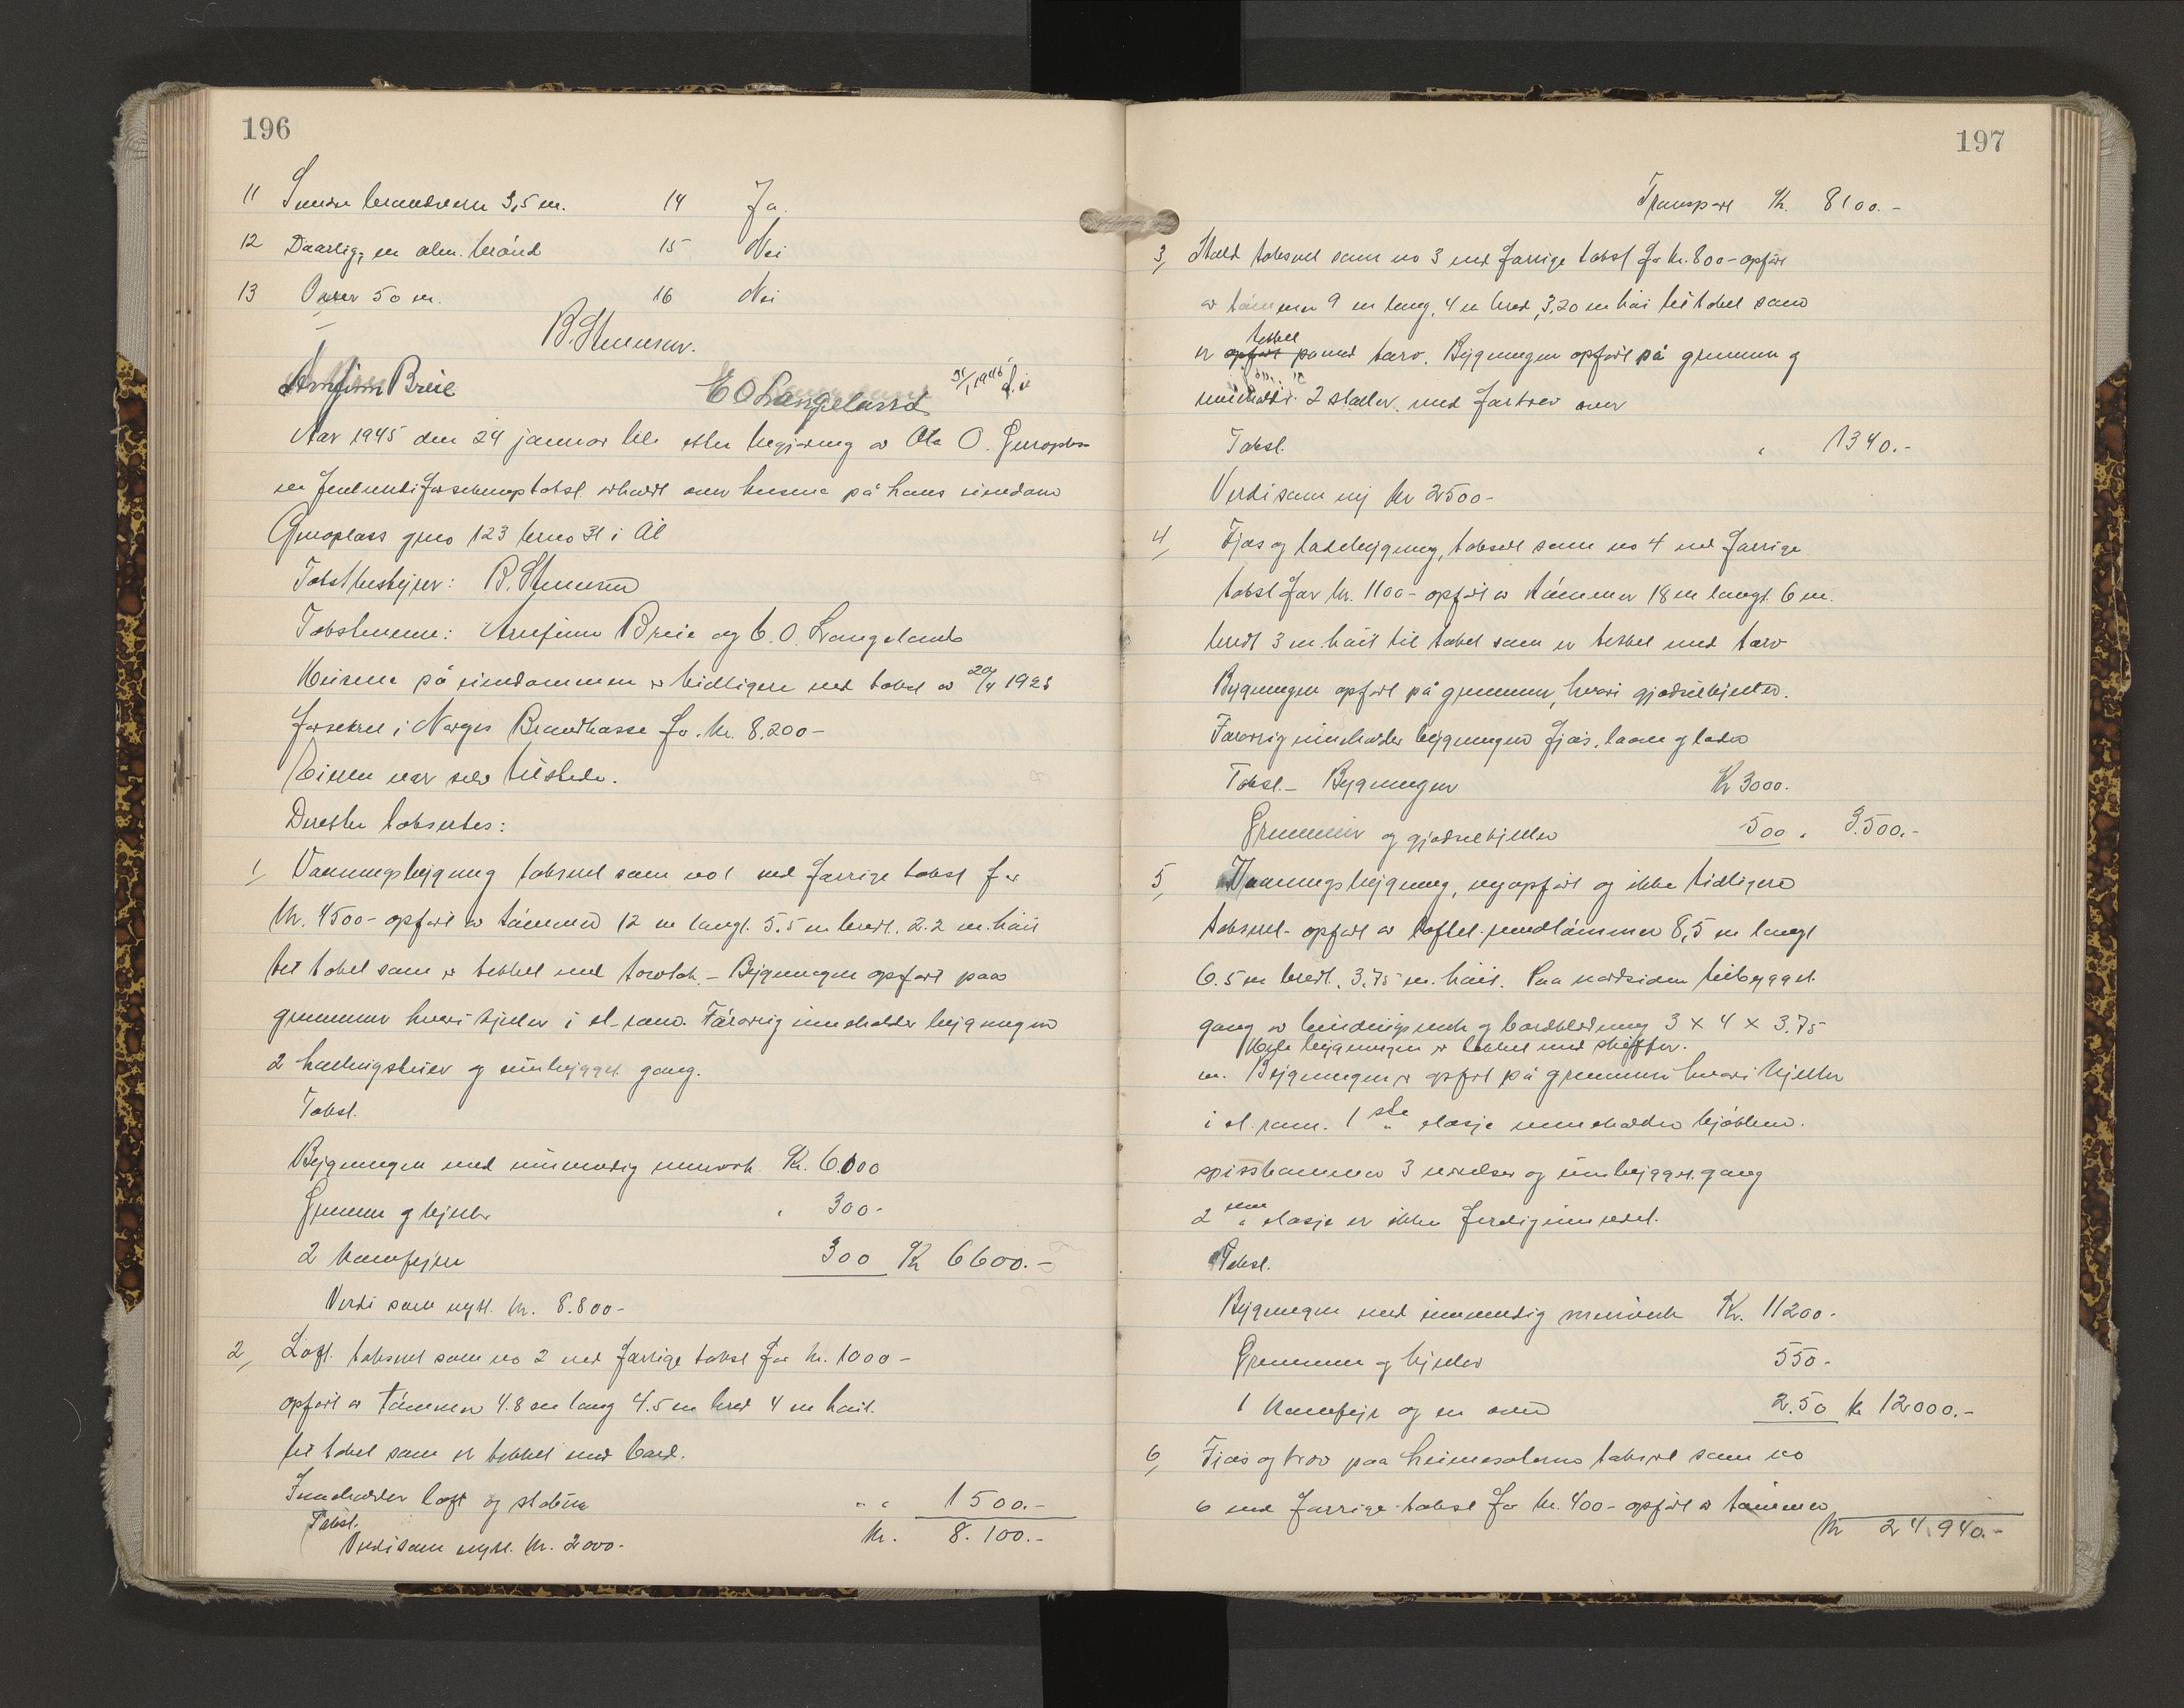 196
11 Smrdr brandvern 3,5 m. 14 Ja.
12 Daarlig, en alm. brønd 15 Nei
13 Over 50 m. 16 Nei
B. Stenersen.
Arnfinn Breie E O Langeland 31/1 1945
Aar 1945 den 24 januar ble etter begjæring av Ola O. Guroplass
en forsikringstakst avholdt over husene på hans eiendom
Guroplass gno 123 brno 31 i Ål
Takstbestyrer: B. Stenersen
Takstmenn: Arnfinn Breie og E. O. Langeland
Husene på eiendommen er tidligere ved takst av 20/4 1923
forsikret i Norges Brandkasse for kr. 8.200-
Eieren var selv tilstede.
Derefter takseredes:
1, Vaaningsbygning taksert som no 1 ved forrige takst for
kr. 4500- opført av tømmer 12 m langt. 5.5 m bredt. 2.2 m. høit
til taket som er tekket med torvtak. - Bygningen opført paa
grunnmur hvori kjeler i et rom. Forøvrig inneholder bygningen
2 beboelsesrum og innbygget gang.
Takst.
Bygningen med innvendig murverk Kr. 6000
Grunnmur og kjeller " 300-
2 Kamfyrer 300 Kr 6600.-
Verdi som nytt. kr. 8.800-
2, Loft. taksert som no 2 ved forrige takst for kr. 1000-
opført av tømmer 4.8 m lang 4.5 m bred 4 m høit.
til taket som er tekket med bord.
Inneholder loft og stabur " " 1500.-
Takst.
Verdi som nytt. kr. 2000- Kr. 8.100.-
197
Transport Kr. 8100.-
3, Stald taksert som no 3 ved forrige takst for kr. 800- opført
av tømmer 9 m lang, 4 m bred, 3,20 m høi til taket som
tekket
er opført med torv. Bygningen opført på grunnmur og
inneholder 2 staller. med fortrev over
Takst. " 1340.-
Verdi som ny kr 2500-
4, Fjøs og ladebygning, taksert som no 4 ved forrige
takst for kr. 1100- opført av tømmer 18 m langt. 6 m.
bredt 3 m. høit til taket som er tekket med torv
Bygningen opført på grunnmur, hvori gjødselkjeller.
Forøvrig inneholder bygningen fjøs, laave og lader
Takst. - Bygningen Kr 3000.
Grunnmur og gjødselkjeller 500 " 3.500.-
5, Vaaningsbygning, nyopført og ikke tidligere
taksert - opført av loftet rundtømmer 8,5 m langt
6.5 m bredt. 3.75 m. høit. Paa nordsiden tilbygget
gang av bindingsverk og bordkledning 3 x 4 x 3.75
Hele bygningen er tekket med skiffer.
m. Bygningen er opført på grunnmur hvori kjeller
i et rum. 1ste etasje inneholder kjøkken.
spisskammer 3 værelser og innbygget gang
2nen etasje er ikke ferdig innredet.
Takst.
Bygningen med innvendig murverk Kr. 11200-
Grunnmur og kjeller 550-
1 Kamfyr og en ovn 2.50 kr 12000.-
6, Fjøs og trev paa heimestølen taksert som no
6 ved forrige takst for kr. 400- opført av tømmer
Kr 24.940.-